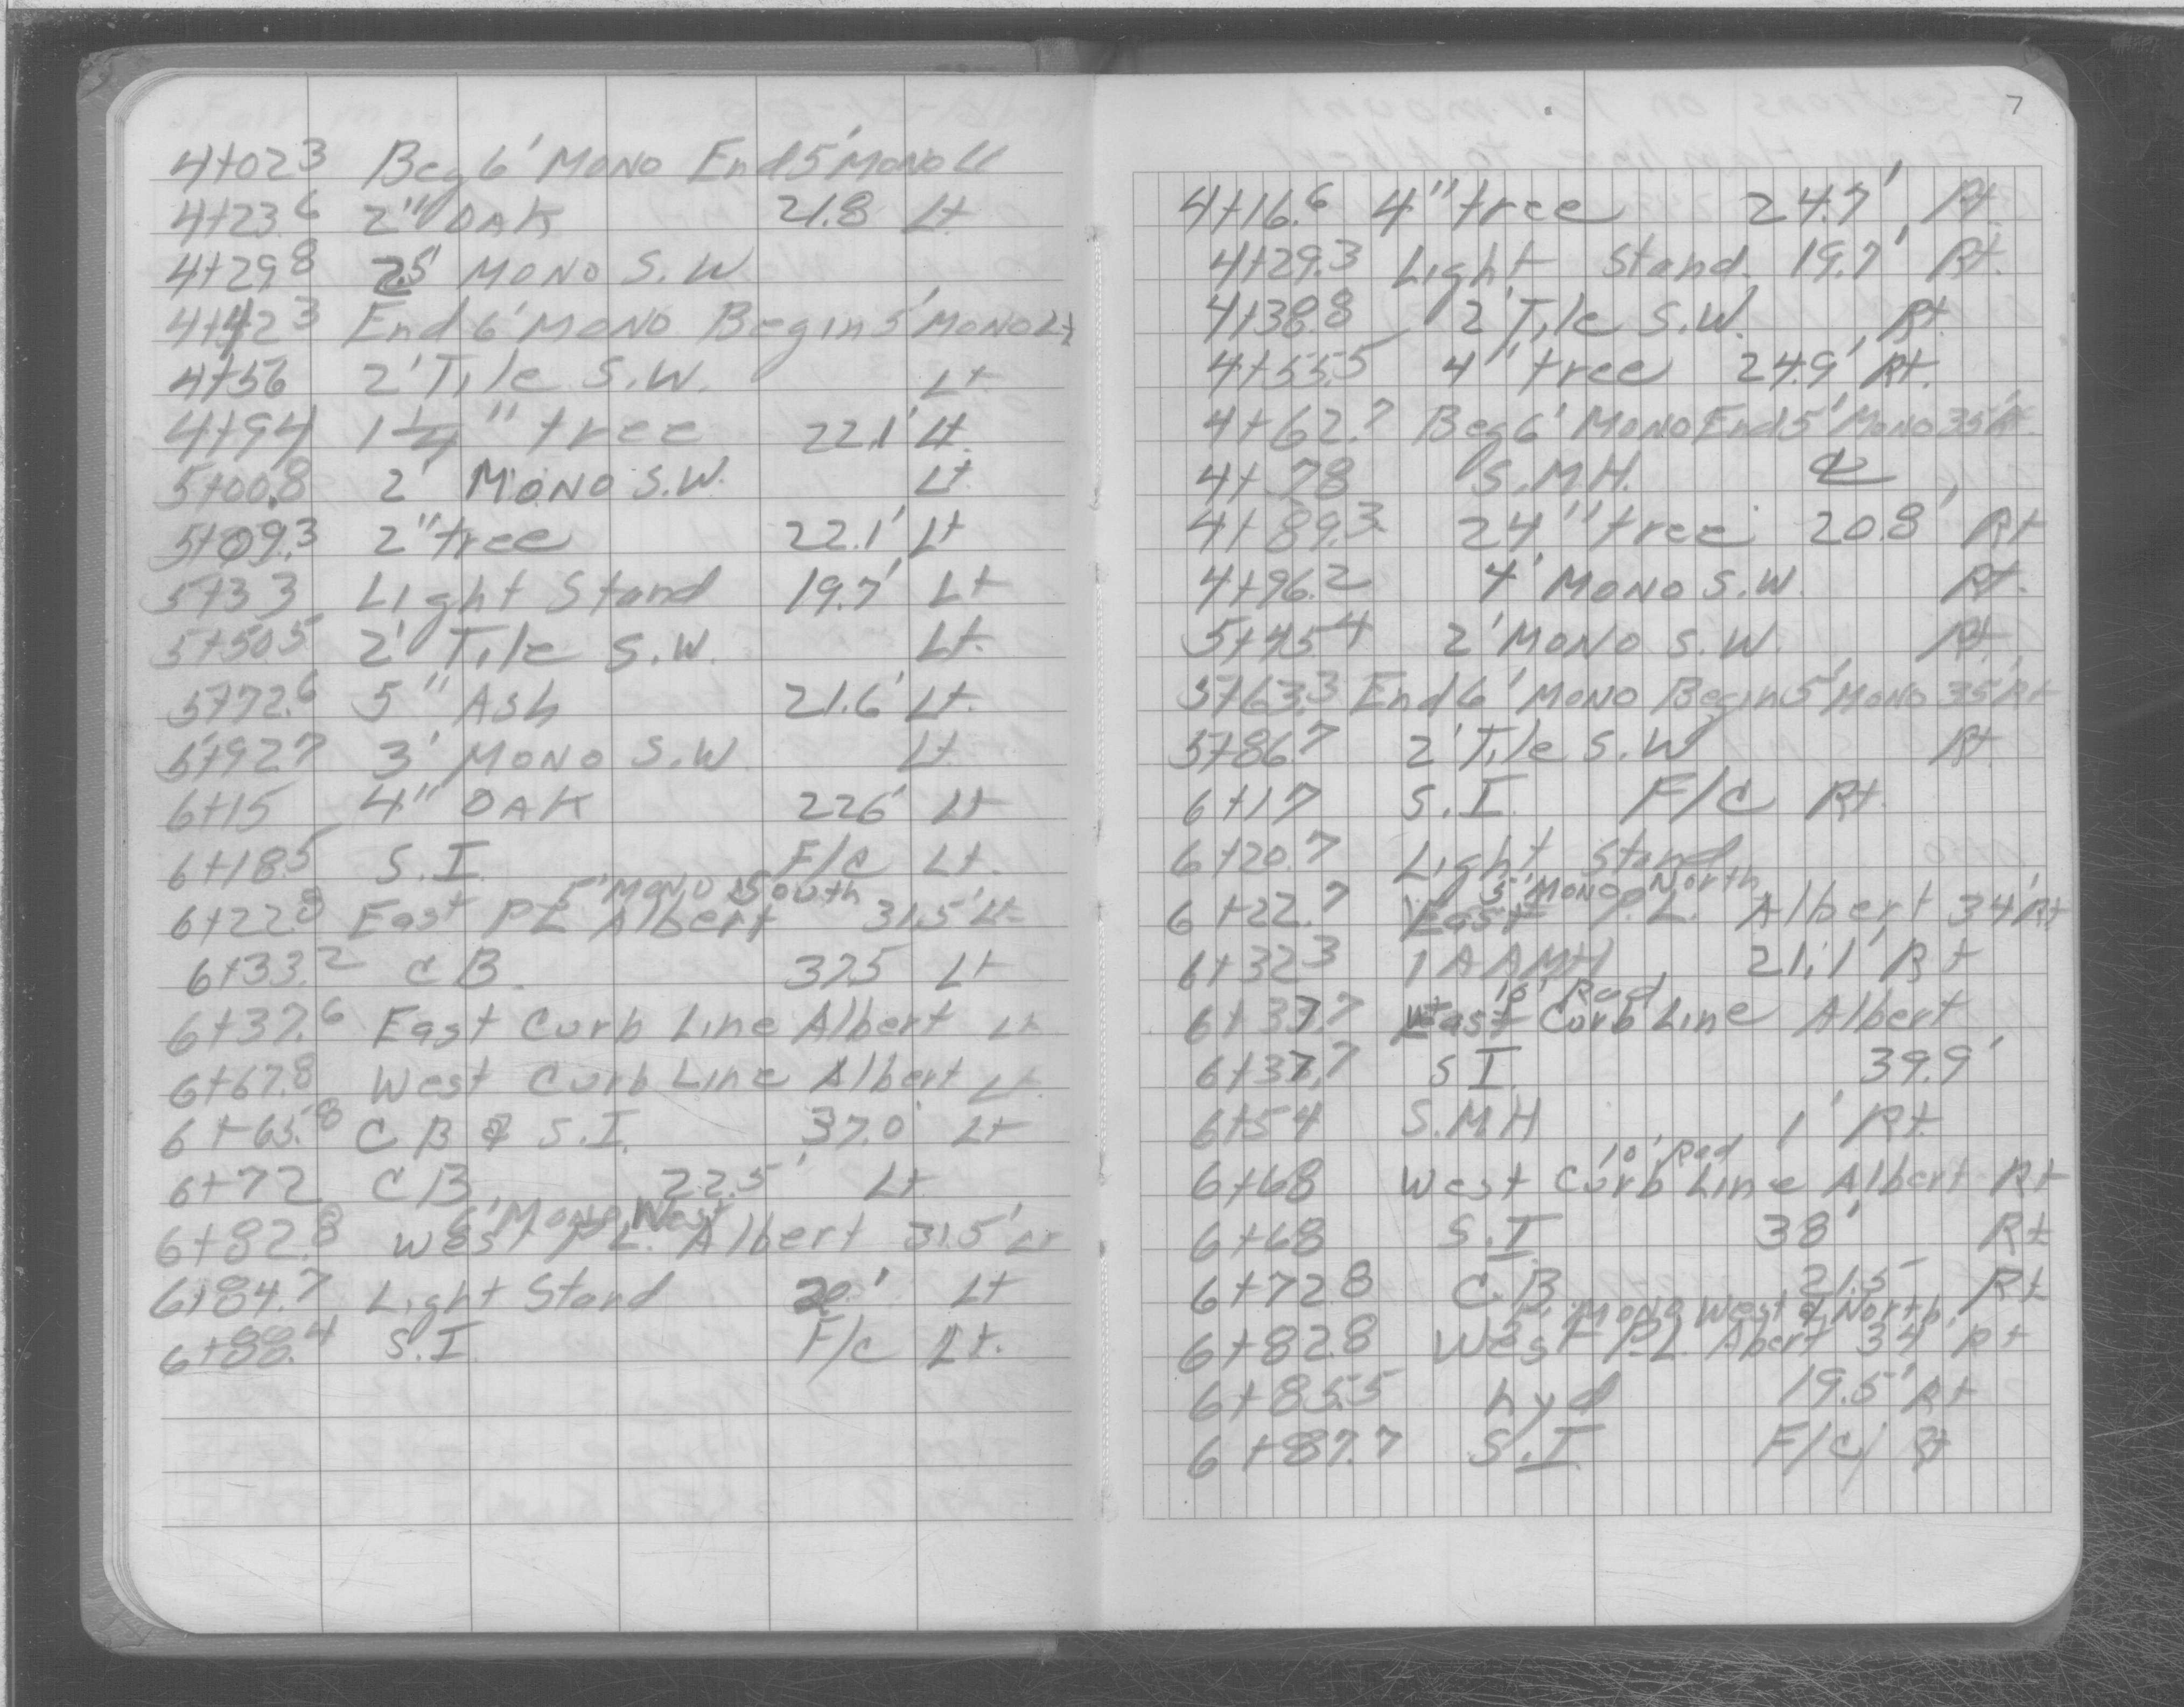 4+02.3 Beg 6' MONO End 5' MONO Lt
4+23.6 2" OAK 21.8 Lt.
4+29.8 2.5' MONO S.W
4+42.3 End 6' MONO Begin 5' MONO Lt
4+56 2' Tile S.W. Lt
4+94 1 1/4" tree 22.1' Lt.
5+00.8 2' MONO S.W. Lt
5+09.3 2" tree 22.1' Lt
5+33 Light Stand 19.7' Lt
5+50.5 2' Tile S.W. Lt.
5+72.6 5" Ash 21.6' Lt.
5+92.7 3' MONO S.W Lt
6+15 4" OAK 22.6' Lt
6+18.5 S.I. F/c Lt.
5' MONO South
6+22.8 East PL Albert 31.5' Lt
6+33.2 CB. 37.5 Lt
6+37.6 East Curb Line Albert Lt
6+67.8 West Curb Line Albert Lt
6+65.8 CB & S.I. 37.0' Lt
6+72 CB 22.5' Lt
6' MONO West
6+82.8 West P.L. Albert 31.5' Lt
6+84.7 Light Stand 20' Lt
6+88.4 S.I. F/c Lt.
7
4+16.6 4" tree 24.7' Rt.
4+29.3 Light Stand. 19.7' Rt.
4+38.8 2' Tile S.W. Rt.
4+55.5 4" tree 24.9' Rt.
4+62.7 Beg 6' MONO End 5' MONO 35' Rt.
4+78 S.M.H. ℄
4+89.3 24" tree 20.8' Rt
4+96.2 4' MONO S.W. Rt.
5+45.4 2' MONO S.W. Rt.
5+63.3 End 6' MONO Begin 5' MONO 35' Rt
5+86.7 2' Tile S.W Rt.
6+17 S.I. F/C Rt.
6+20.7 Light Stand
5' MONO North
6+22.7 East P.L. Albert 34' Rt
6+32.3 1 A A MH 21.1' Rt
10' Rad
6+37.7 East Curb Line Albert
6+37.7 S I. 39.9'
6+54 S.M.H 1' Rt.
10' Rad
6+68 West Curb Line Albert Rt
6+68 S.I 38' Rt
6+72.8 C.B. 21.5 Rt
MONO West & North
6+82.8 West P.L. Abert 34' Rt
6+85.5 hyd 19.5' Rt
6+87.7 S.I. F/C Rt